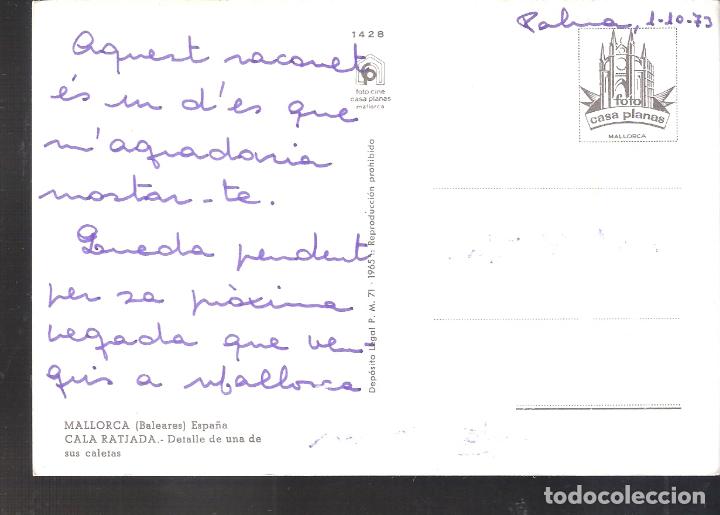 Palma, 1-10-73
1428
foto cine
casa planas
mallorca
foto
casa planas
MALLORCA
Aquest raconet
és un d'es que
m'agradaria
mostar-te.
Queda pendent
per sa pròxima
vegada que ven-
guis a Mallorca
Depósito Legal P. M. 71 - 1965 :: Reproducción prohibido
MALLORCA (Baleares) España
CALA RATJADA.- Detalle de una de
sus caletas
todocoleccion.net